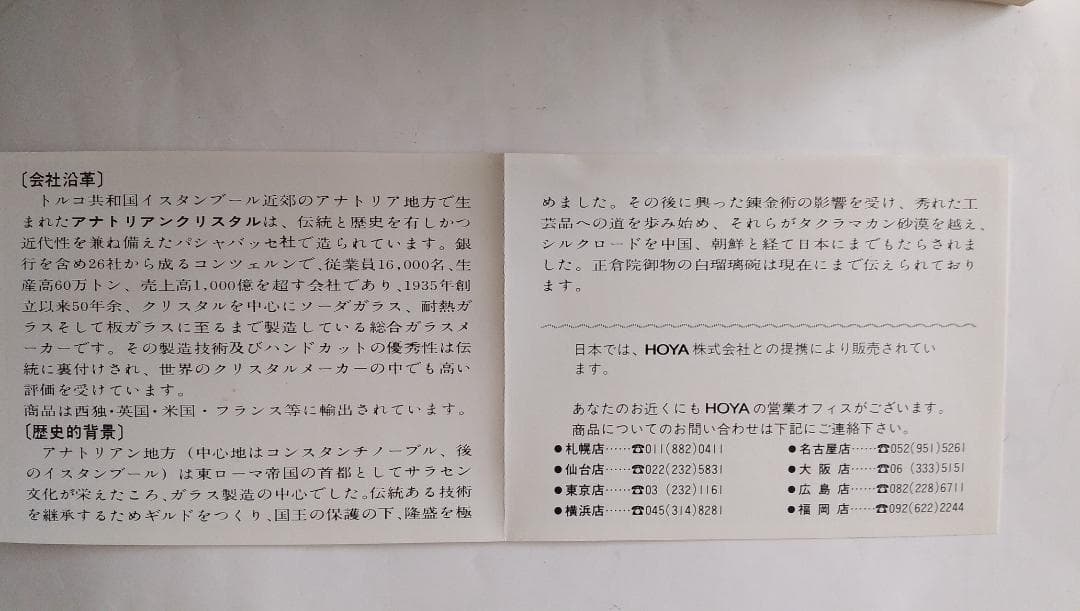 〔会社沿革〕
トルコ共和国イスタンブール近郊のアナトリア地方で生
まれたアナトリアンクリスタルは、伝統と歴史を有しかつ
近代性を兼ね備えたパシャバッセ社で造られています。銀
行を含め26社から成るコンツェルンで、従業員16,000名、生
産高60万トン、売上高1,000億を超す会社であり、1935年創
立以来50年余、クリスタルを中心にソーダガラス、耐熱ガ
ラスそして板ガラスに至るまで製造している総合ガラスメ
ーカーです。その製造技術及びハンドカットの優秀性は伝
統に裏付けされ、世界のクリスタルメーカーの中でも高い
評価を受けています。
商品は西独・英国・米国・フランス等に輸出されています。
〔歴史的背景〕
アナトリアン地方（中心地はコンスタンチノーブル、後
のイスタンブール）は東ローマ帝国の首都としてサラセン
文化が栄えたころ、ガラス製造の中心でした。伝統ある技術
を継承するためギルドをつくり、国王の保護の下、隆盛を極
めました。その後に興った錬金術の影響を受け、秀れた工
芸品への道を歩み始め、それらがタクラマカン砂漠を越え、
シルクロードを中国、朝鮮と経て日本にまでもたらされま
した。正倉院御物の白瑠璃碗は現在にまで伝えられており
ます。
日本では、HOYA株式会社との提携により販売されてい
ます。
あなたのお近くにもHOYAの営業オフィスがございます。
商品についてのお問い合わせは下記にご連絡下さい。
●札幌店……☎011(882)0411
●仙台店……☎022(232)5831
●東京店……☎03 (232)1161
●横浜店……☎045(314)8281
●名古屋店……☎052(951)5261
●大 阪 店……☎06 (333)5151
●広 島 店……☎082(228)6711
●福 岡 店……☎092(622)2244